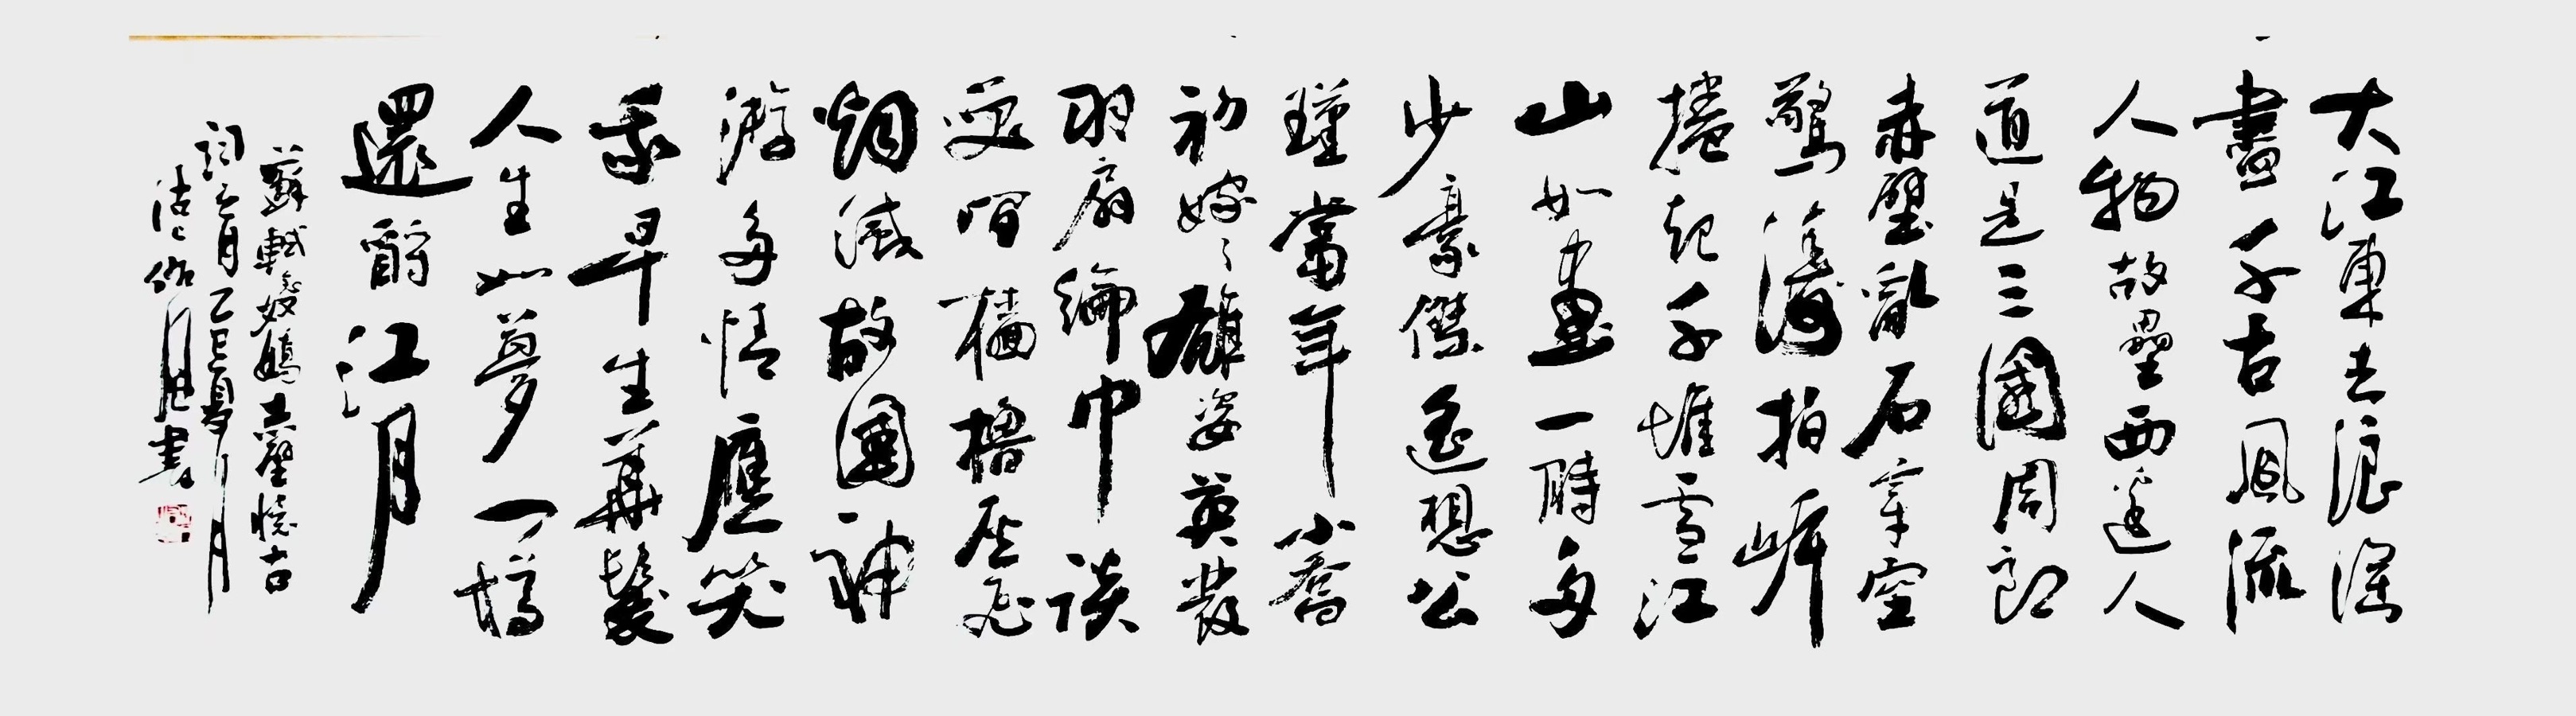 大江東去浪淘
盡千古風流
人物故壘西邊人
道是三國周郎
赤壁亂石穿空
驚濤拍岸
捲起千堆雪江
山如畫一時多
少豪傑遙想公
瑾當年小喬
初嫁了雄姿英發
羽扇綸巾談
笑間檣櫓灰飛
烟滅故國神
游多情應笑
我早生華髮
人生如夢一樽
還酹江月
蘇軾念奴嬌赤壁懷古
詞乙巳夏月
書